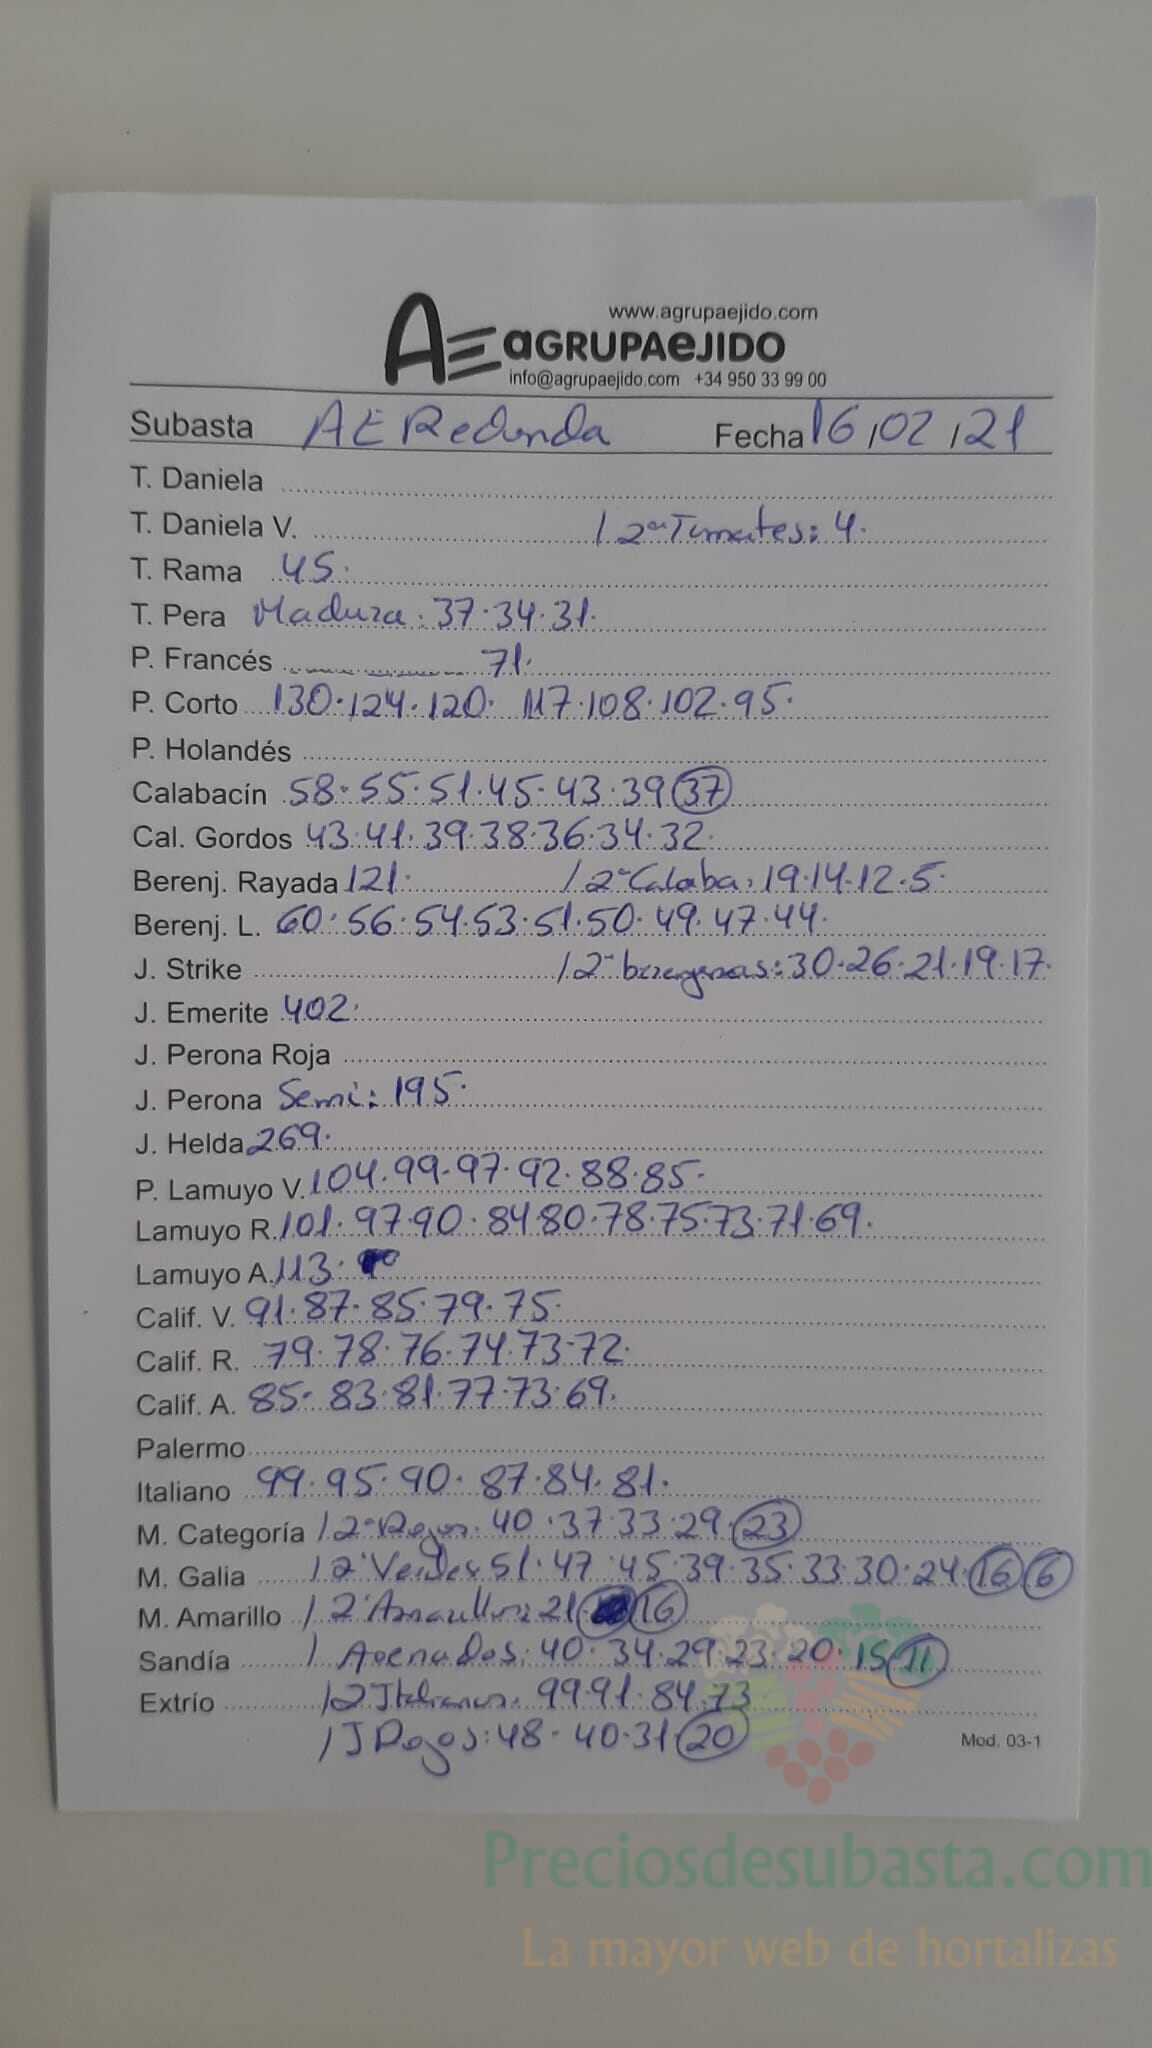 www.agrupaejido.com
AE aGRUPAeJIDO
info@agrupaejido.com +34 950 33 99 00
Subasta AE Redonda Fecha 16/02/21
T. Daniela
T. Daniela V. / 2ª Tomates: 4.
T. Rama 45.
T. Pera Madura: 37.34.31.
P. Francés 71.
P. Corto 130.124.120. 117.108.102.95.
P. Holandés
Calabacín 58.55.51.45.43.39 37
Cal. Gordos 43.41.39.38.36.34.32.
Berenj. Rayada 121. / 2ª Calaba: 19.14.12.5.
Berenj. L. 60.56.54.53.51.50.49.47.44.
J. Strike / 2ª berengenas: 30.26.21.19.17.
J. Emerite 402.
J. Perona Roja
J. Perona Semi: 195.
J. Helda 269.
P. Lamuyo V. 104.99.97.92.88.85.
Lamuyo R. 101.97.90.84.80.78.75.73.71.69.
Lamuyo A. 113.
Calif. V. 91.87.85.79.75.
Calif. R. 79.78.76.74.73.72.
Calif. A. 85.83.81.77.73.69.
Palermo
Italiano 99.95.90.87.84.81.
M. Categoría / 2ª Rojos: 40.37.33.29 23
M. Galia / 2ª Verdes 51.47.45.39.35.33.30.24. 16 6
M. Amarillo / 2ª Amarillos: 21. 16
Sandía / Asenados: 40.34.29.23.20.15 11
Extrío / 2 Italianos. 99.91.84.73.
/ J Rojos: 48.40.31 20
Mod. 03-1
Preciosdesubasta.com
La mayor web de hortalizas